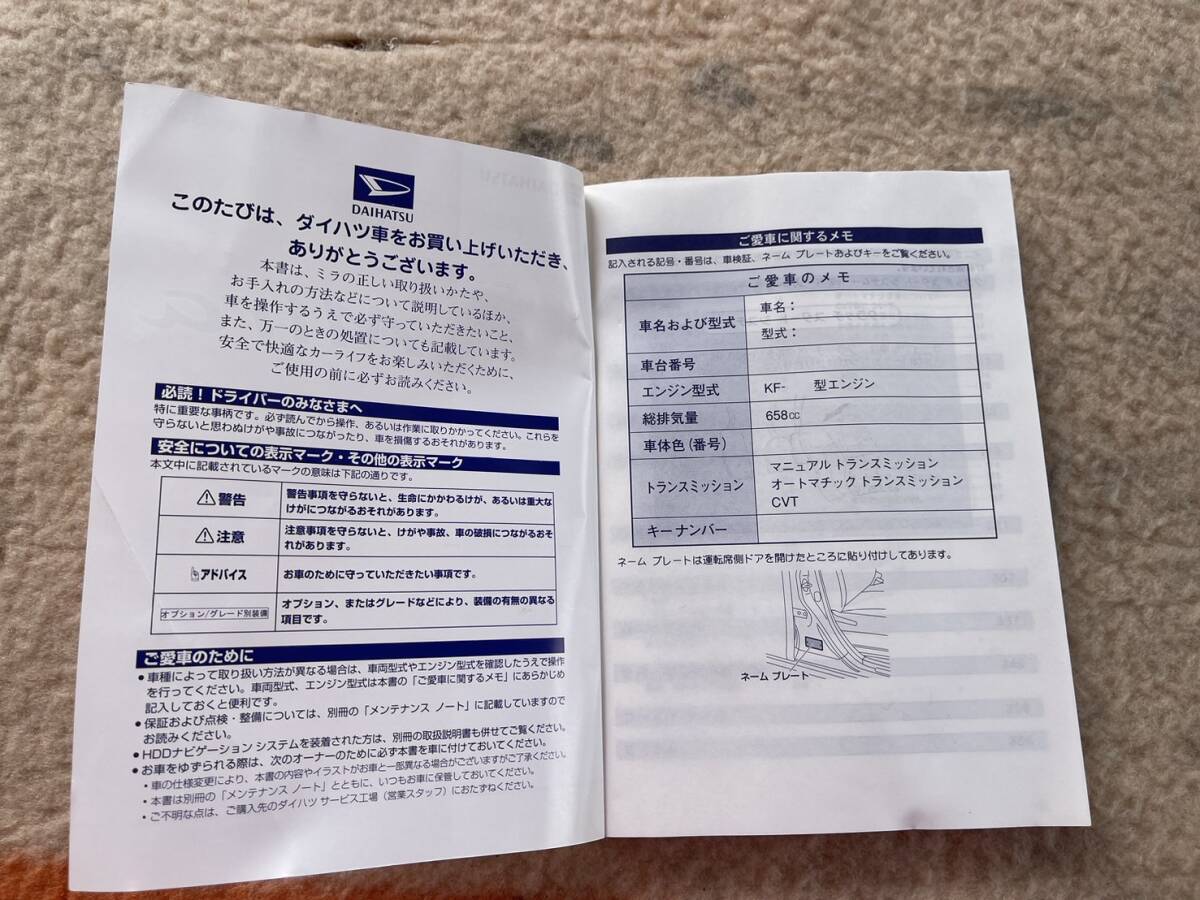 DAIHATSU
このたびは、ダイハツ車をお買い上げいただき、
ありがとうございます。
本書は、ミラの正しい取り扱いかたや、
お手入れの方法などについて説明しているほか、
車を操作するうえで必ず守っていただきたいこと、
また、万一のときの処置についても記載しています。
安全で快適なカーライフをお楽しみいただくために、
ご使用の前に必ずお読みください。
必読！ドライバーのみなさまへ
特に重要な事柄です。必ず読んでから操作、あるいは作業に取りかかってください。これらを
守らないと思わぬけがや事故につながったり、車を損傷するおそれがあります。
安全についての表示マーク・その他の表示マーク
本文中に記載されているマークの意味は下記の通りです。
警告
警告事項を守らないと、生命にかかわるけが、あるいは重大な
けがにつながるおそれがあります。
注意
注意事項を守らないと、けがや事故、車の破損につながるおそ
れがあります。
アドバイス
お車のために守っていただきたい事項です。
オプション/グレード別装備
オプション、またはグレードなどにより、装備の有無の異なる
項目です。
ご愛車のために
●車種によって取り扱い方法が異なる場合は、車両型式やエンジン型式を確認したうえで操作
を行ってください。車両型式、エンジン型式は本書の「ご愛車に関するメモ」にあらかじめ
記入しておくと便利です。
●保証および点検・整備については、別冊の「メンテナンス ノート」に記載していますので
お読みください。
●HDDナビゲーション システムを装着された方は、別冊の取扱説明書も併せてご覧ください。
●お車をゆずられる際は、次のオーナーのために必ず本書を車に付けておいてください。
・車の仕様変更により、本書の内容やイラストがお車と一部異なる場合がございますがご了承ください。
・本書は別冊の「メンテナンス ノート」とともに、いつもお車に保管しておいてください。
・ご不明な点は、ご購入先のダイハツ サービス工場（営業スタッフ）におたずねください。
ご愛車に関するメモ
記入される記号・番号は、車検証、ネーム プレートおよびキーをご覧ください。
ご愛車のメモ
車名および型式
車名：
型式：
車台番号
エンジン型式
KF- 型エンジン
総排気量
658cc
車体色（番号）
トランスミッション
マニュアル トランスミッション
オートマチック トランスミッション
CVT
キーナンバー
ネーム プレートは運転席側ドアを開けたところに貼り付けしてあります。
ネーム プレート